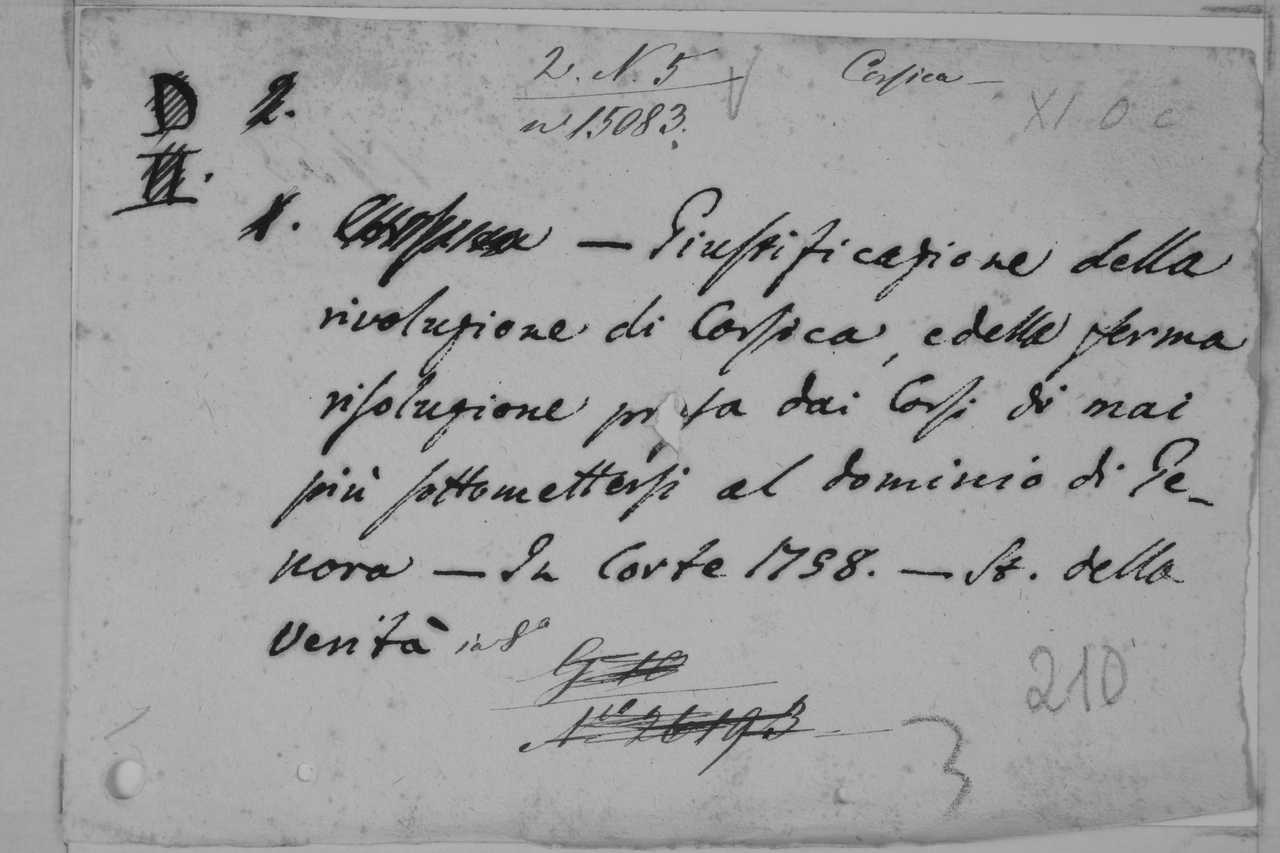 2. N. 5 Corsica —
XI 0 c
D 2.
n 15083.
II.
1. — Giustificazione della
rivoluzione di Corsica, e della ferma
risoluzione presa dai Corsi di mai
più sottomettersi al dominio di Ge-
nova — In Corte 1758. — St. della
Verità in 8º
G 10
Nº 26193
210
3